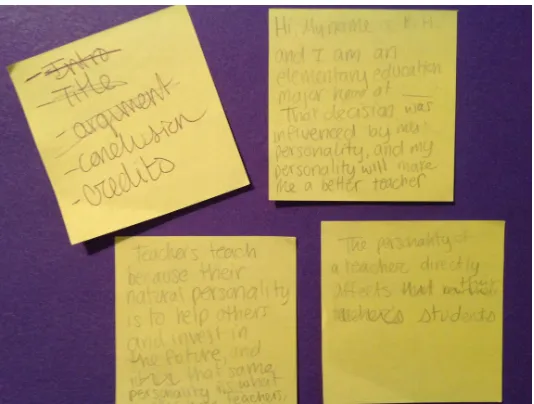 - Intro
- Title
- argument
- conclusion
- credits
Hi, My name is
and I am an
elementary education
major here at ___.
That decision was
influenced by my
personality, and my
personality will make
me a better teacher
Teachers teach
because their
natural personality
is to help others
and invest in
the future, and
that same
personality is what
teachers,
The personality of
a teacher directly
affects that
students